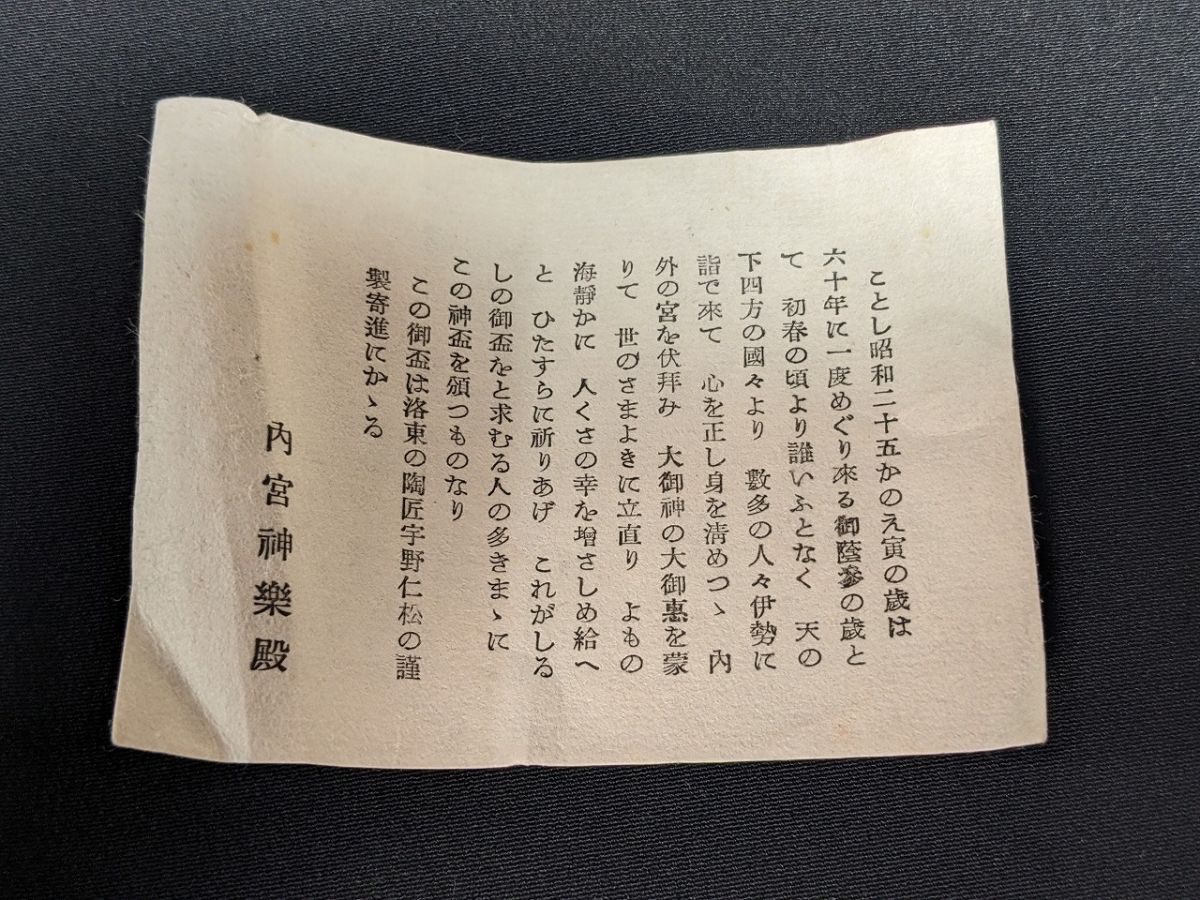 ことし昭和二十五かのえ寅の歳は
六十年に一度めぐり來る御蔭參の歳と
て　初春の頃より誰いふとなく　天の
下四方の國々より　數多の人々伊勢に
詣で來て　心を正し身を淸めつゝ　內
外の宮を伏拜み　大御神の大御惠を蒙
りて　世のさまよきに立直り　よもの
海靜かに　人くさの幸を增さしめ給へ
と　ひたすらに祈りあげ　これがしる
しの御盃をと求むる人の多きまゝに
この神盃を頒つものなり
この御盃は洛東の陶匠宇野仁松の謹
製寄進にかゝる
內宮神樂殿